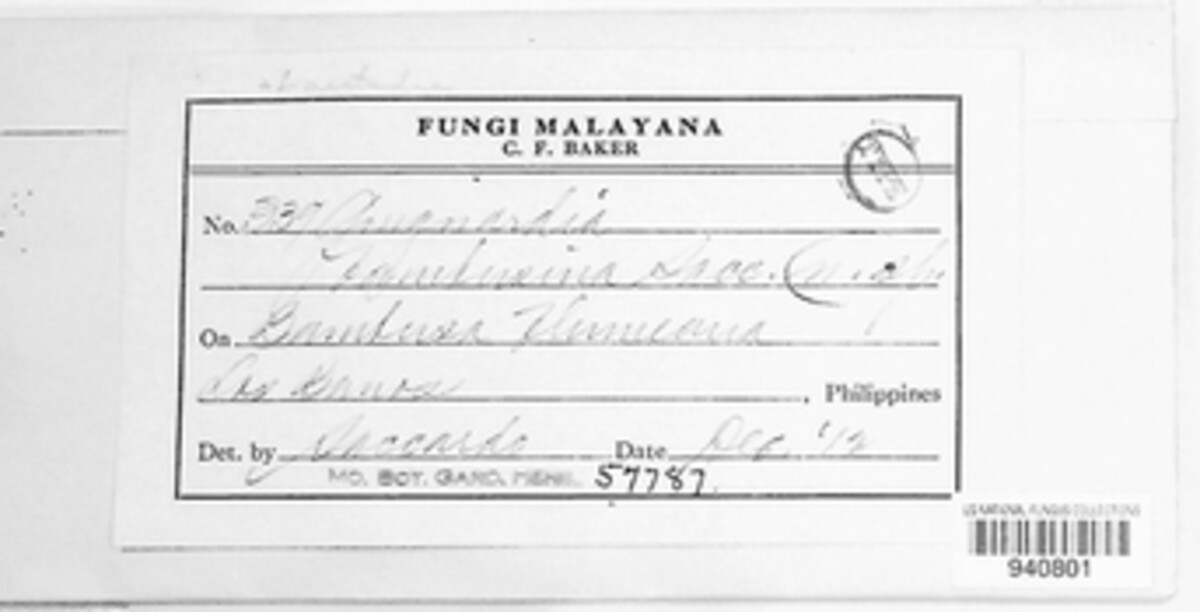 FUNGI MALAYANA
C. F. BAKER
No. 339
Sacc. (n. sp.
On Bambusa Blumeana
Los Banos, Philippines
Det. by Saccardo Date Dec. '12
MO. BOT. GARD. HERB. 57787.
US NATIONAL FUNGUS COLLECTIONS
940801